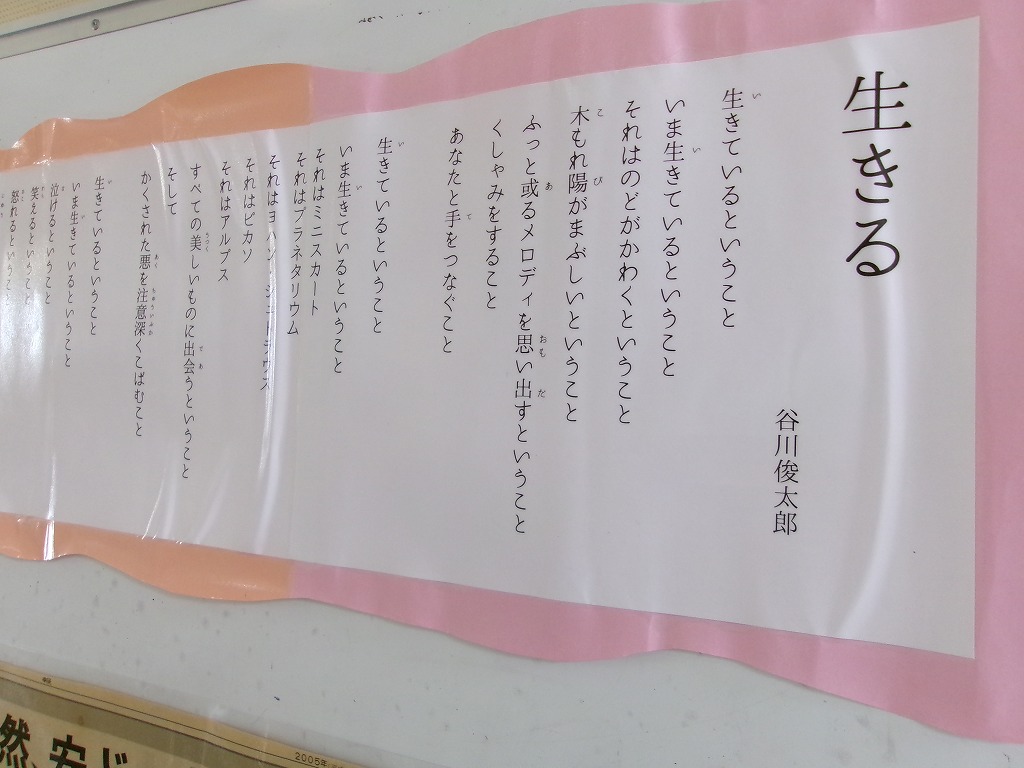 生きる
谷川俊太郎
生きているということ
いま生きているということ
それはのどがかわくということ
木もれ陽がまぶしいということ
ふっと或るメロディを思い出すということ
くしゃみをすること
あなたと手をつなぐこと
生きているということ
いま生きているということ
それはミニスカート
それはプラネタリウム
それはヨハン・シュトラウス
それはピカソ
それはアルプス
すべての美しいものに出会うということ
そして
かくされた悪を注意深くこばむこと
生きているということ
いま生きているということ
泣けるということ
笑えるということ
怒れるということ
然、安ど
2005年